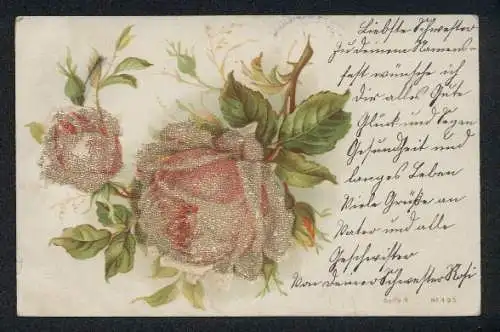 Liebste Schwester
zu deinem Namens-
fest wünsche ich
dir alles Gute
Glück und Segen
Gesundheit und
langes Leben
Viele Grüße an
Vater und alle
Geschwister
Von deiner Schwester Rosi
Serie 6 Nr. 195